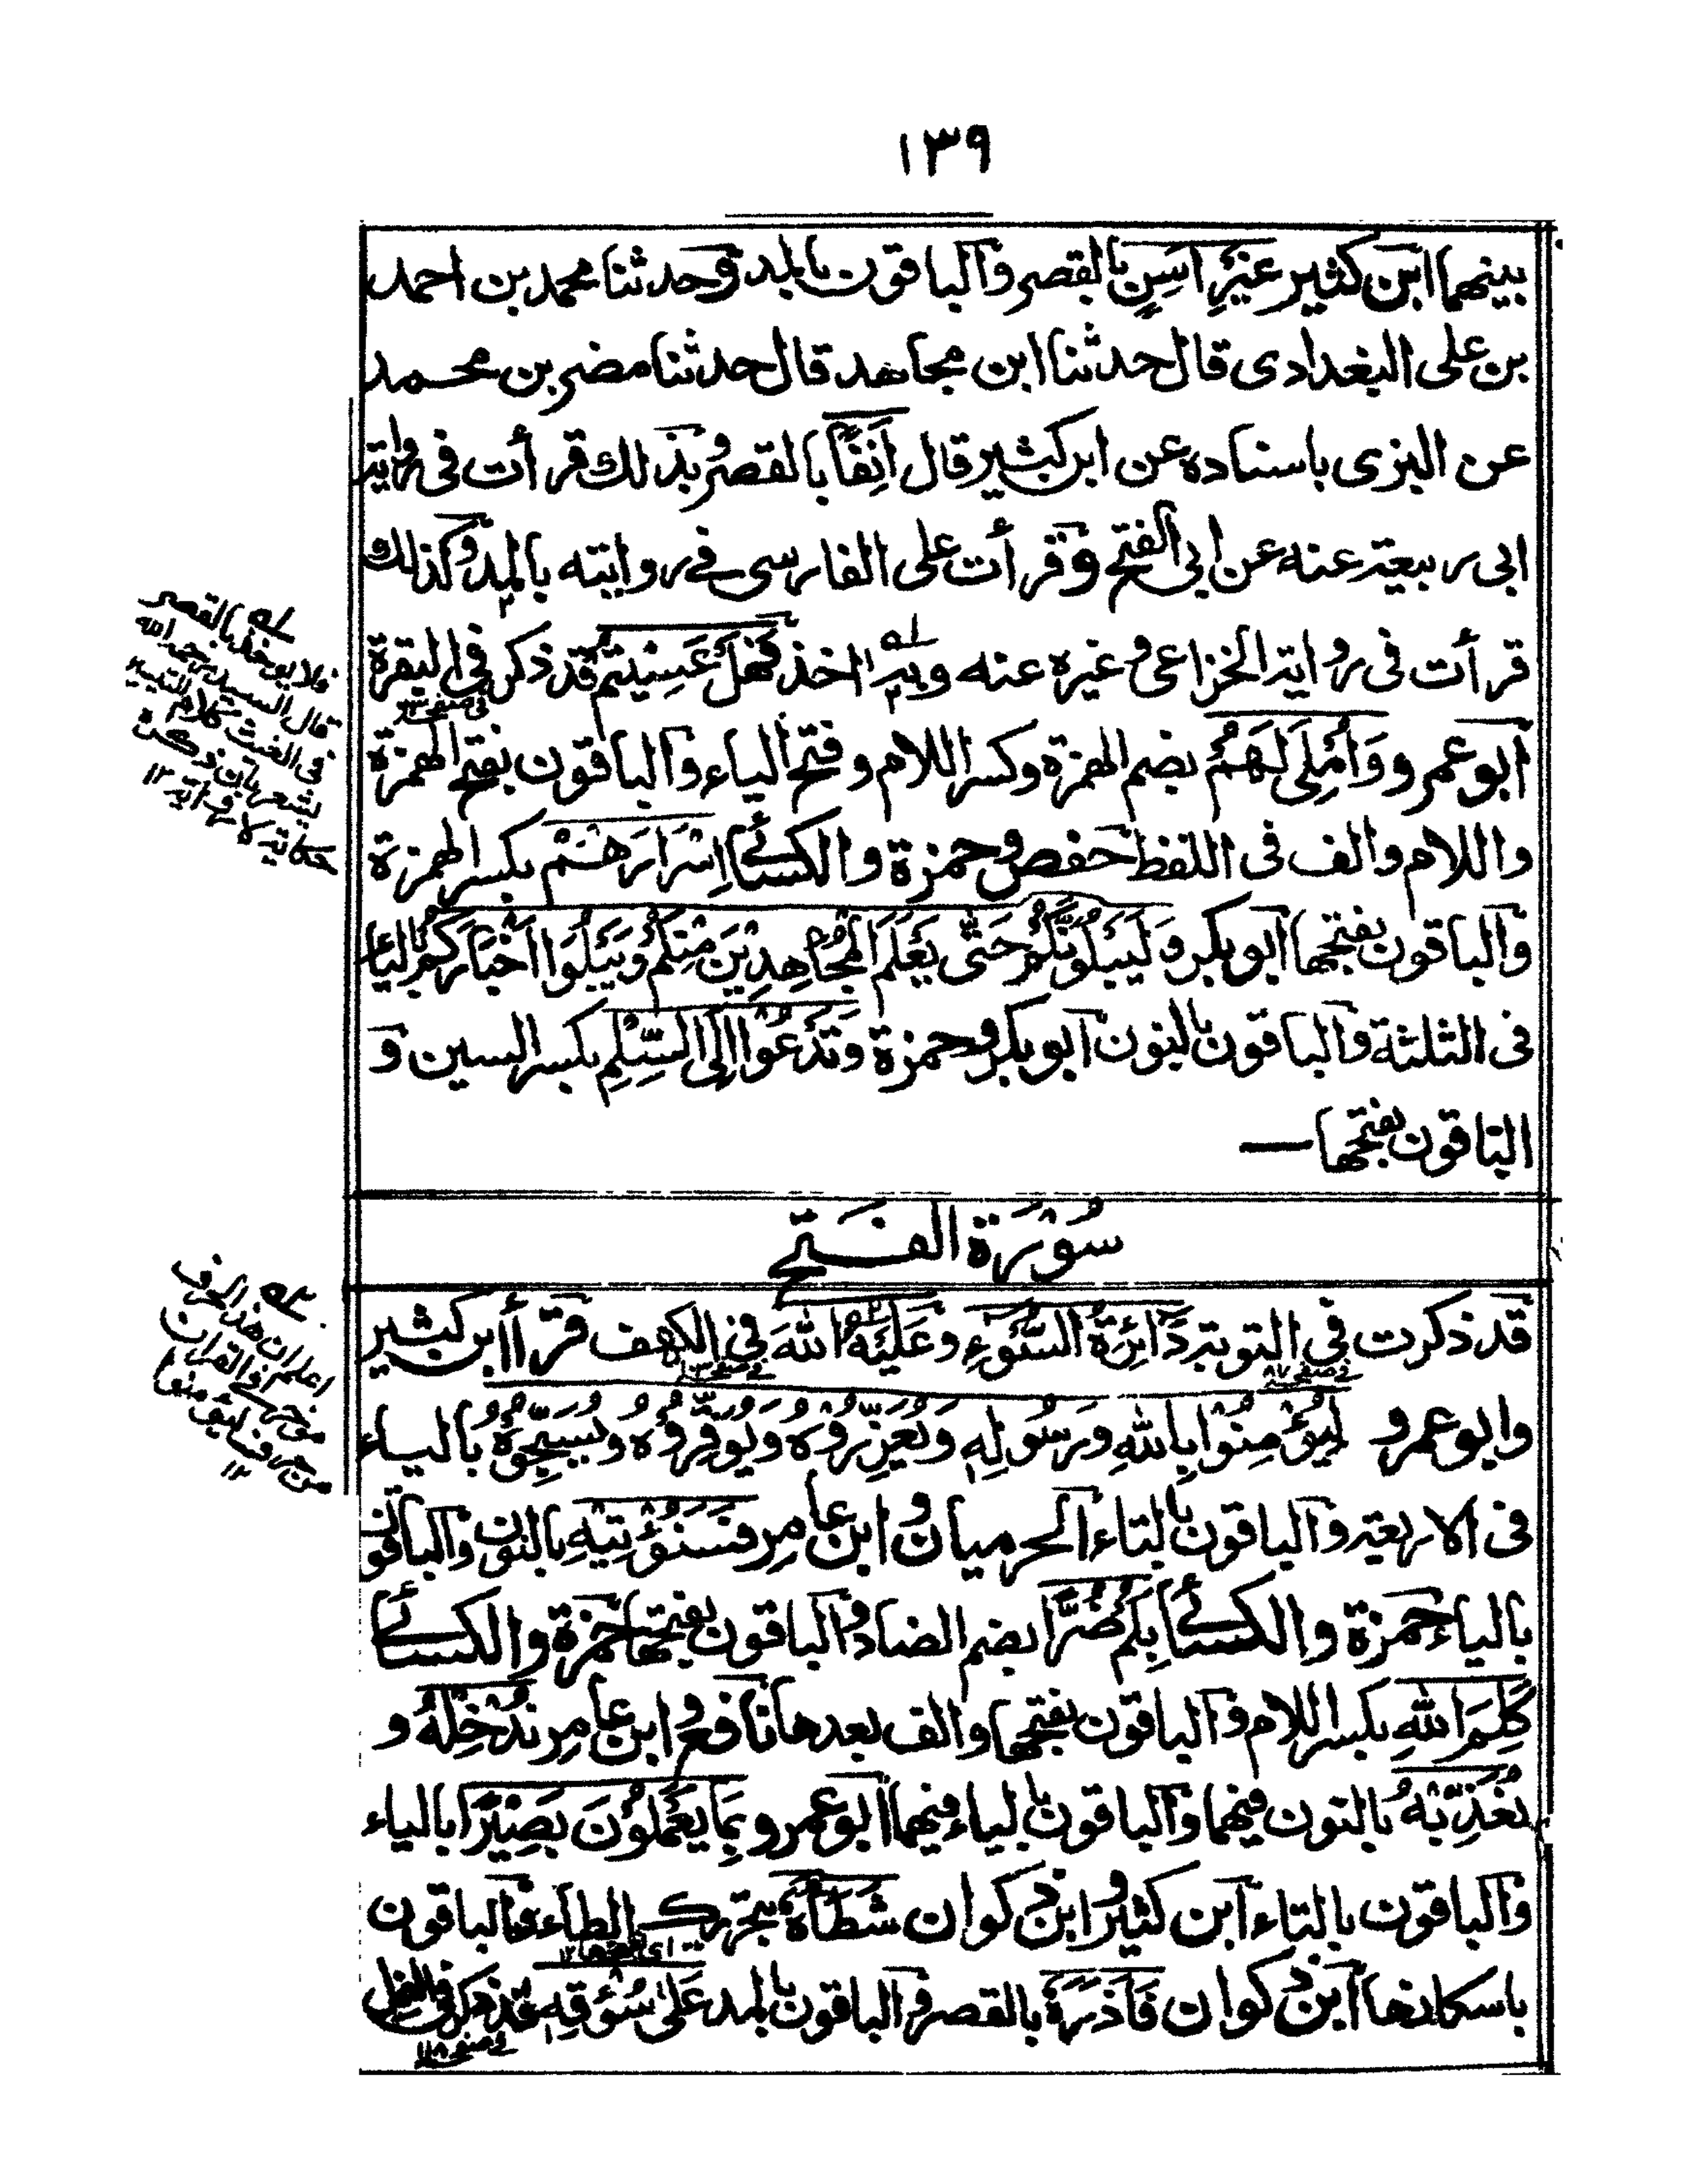 ١٣٩
بينهما ابن كثير غَيْرِ اَسِنٍ بالقصر والباقون بالمد وحدثنا محمد بن احمد
بن على البغدادى قال حدثنا ابن مجاهد قال حدثنا مضر بن محمد
عن البزى باسناده عن ابن كثير قال اَنِفًا بالقصر وبذلك قرأت فى رواية
ابى ربيعة عنه عن ابى الفتح وقرأت على الفارسى فى روايته بالمد وكذلك
قرأت فى رواية الخزاعى وغيره عنه وبه اخذ فَهَلْ عَسِيْتُمْ قد ذكر فى البقرة
ابو عمرو وَاُمْلِىَ لَهُمْ بضم الهمزة وكسر اللام وفتح الياء والباقون بفتح الهمزة
واللام والف فى اللفظ حفص وحمزة والكسائى اِسْرَارَهُمْ بكسر الهمزة
والباقون بفتحها ابو بكر وَلَيَبْلُوَنَّكُمْ حَتّٰى يَعْلَمَ الْمُجَاهِدِيْنَ مِنْكُمْ وَيَبْلُوَا اَخْبَارَكُمْ بالياء
فى الثلثة والباقون بالنون ابو بكر وحمزة وَتَدْعُوْا اِلَى السِّلْمِ بكسر السين و
الباقون بفتحها —
سُوْرَة الفَتْح
قد ذكرت فى التوبة دَائِرَةُ السَّوْءِ وعَلَيْهُ اللهَ فى الكهف قرأ ابن كثير
فى صفحه ٨٧
وابو عمرو لِيُؤْمِنُوْا بِاللهِ وَرَسُولِهٖ وَيُعَزِّرُوْهُ وَيُوَقِّرُوْهُ وَيُسَبِّحُوْهُ بالياء
فى الاربعة والباقون بالتاء الحرميان وابن عامر فَسَنُؤْتِيْهِ بالنون والباقون
بالياء حمزة والكسائى بِكُمْ ضُرًّا بضم الضاد والباقون بفتحها حمزة والكسائى
كَلِمَ اللهِ بكسر اللام والباقون بفتحها والف بعدها نافع وابن عامر نُدْخِلْهُ و
نُعَذِّبْهُ بالنون فيهما والباقون بالياء فيهما ابو عمرو بِمَا يَعْمَلُوْنَ بَصِيْرًا بالياء
والباقون بالتاء ابن كثير وابن ذكوان شَطَأَهُ بتحريك الطاء والباقون
اى بفتحها ١٢
باسكانها ابن ذكوان فَأَزَرَهُ بالقصر والباقون بالمد عَلٰى سُوْقِهٖ قد ذكر فى النمل
فى صفحه
ولا يوخذ بالقصر
قال السيد رحمه الله
فى الغيث كلام التيسير
يشعر بان ذكره
حكاية لا رواية ١٢
اعلم ان هذا الحرف
من جر
١٢